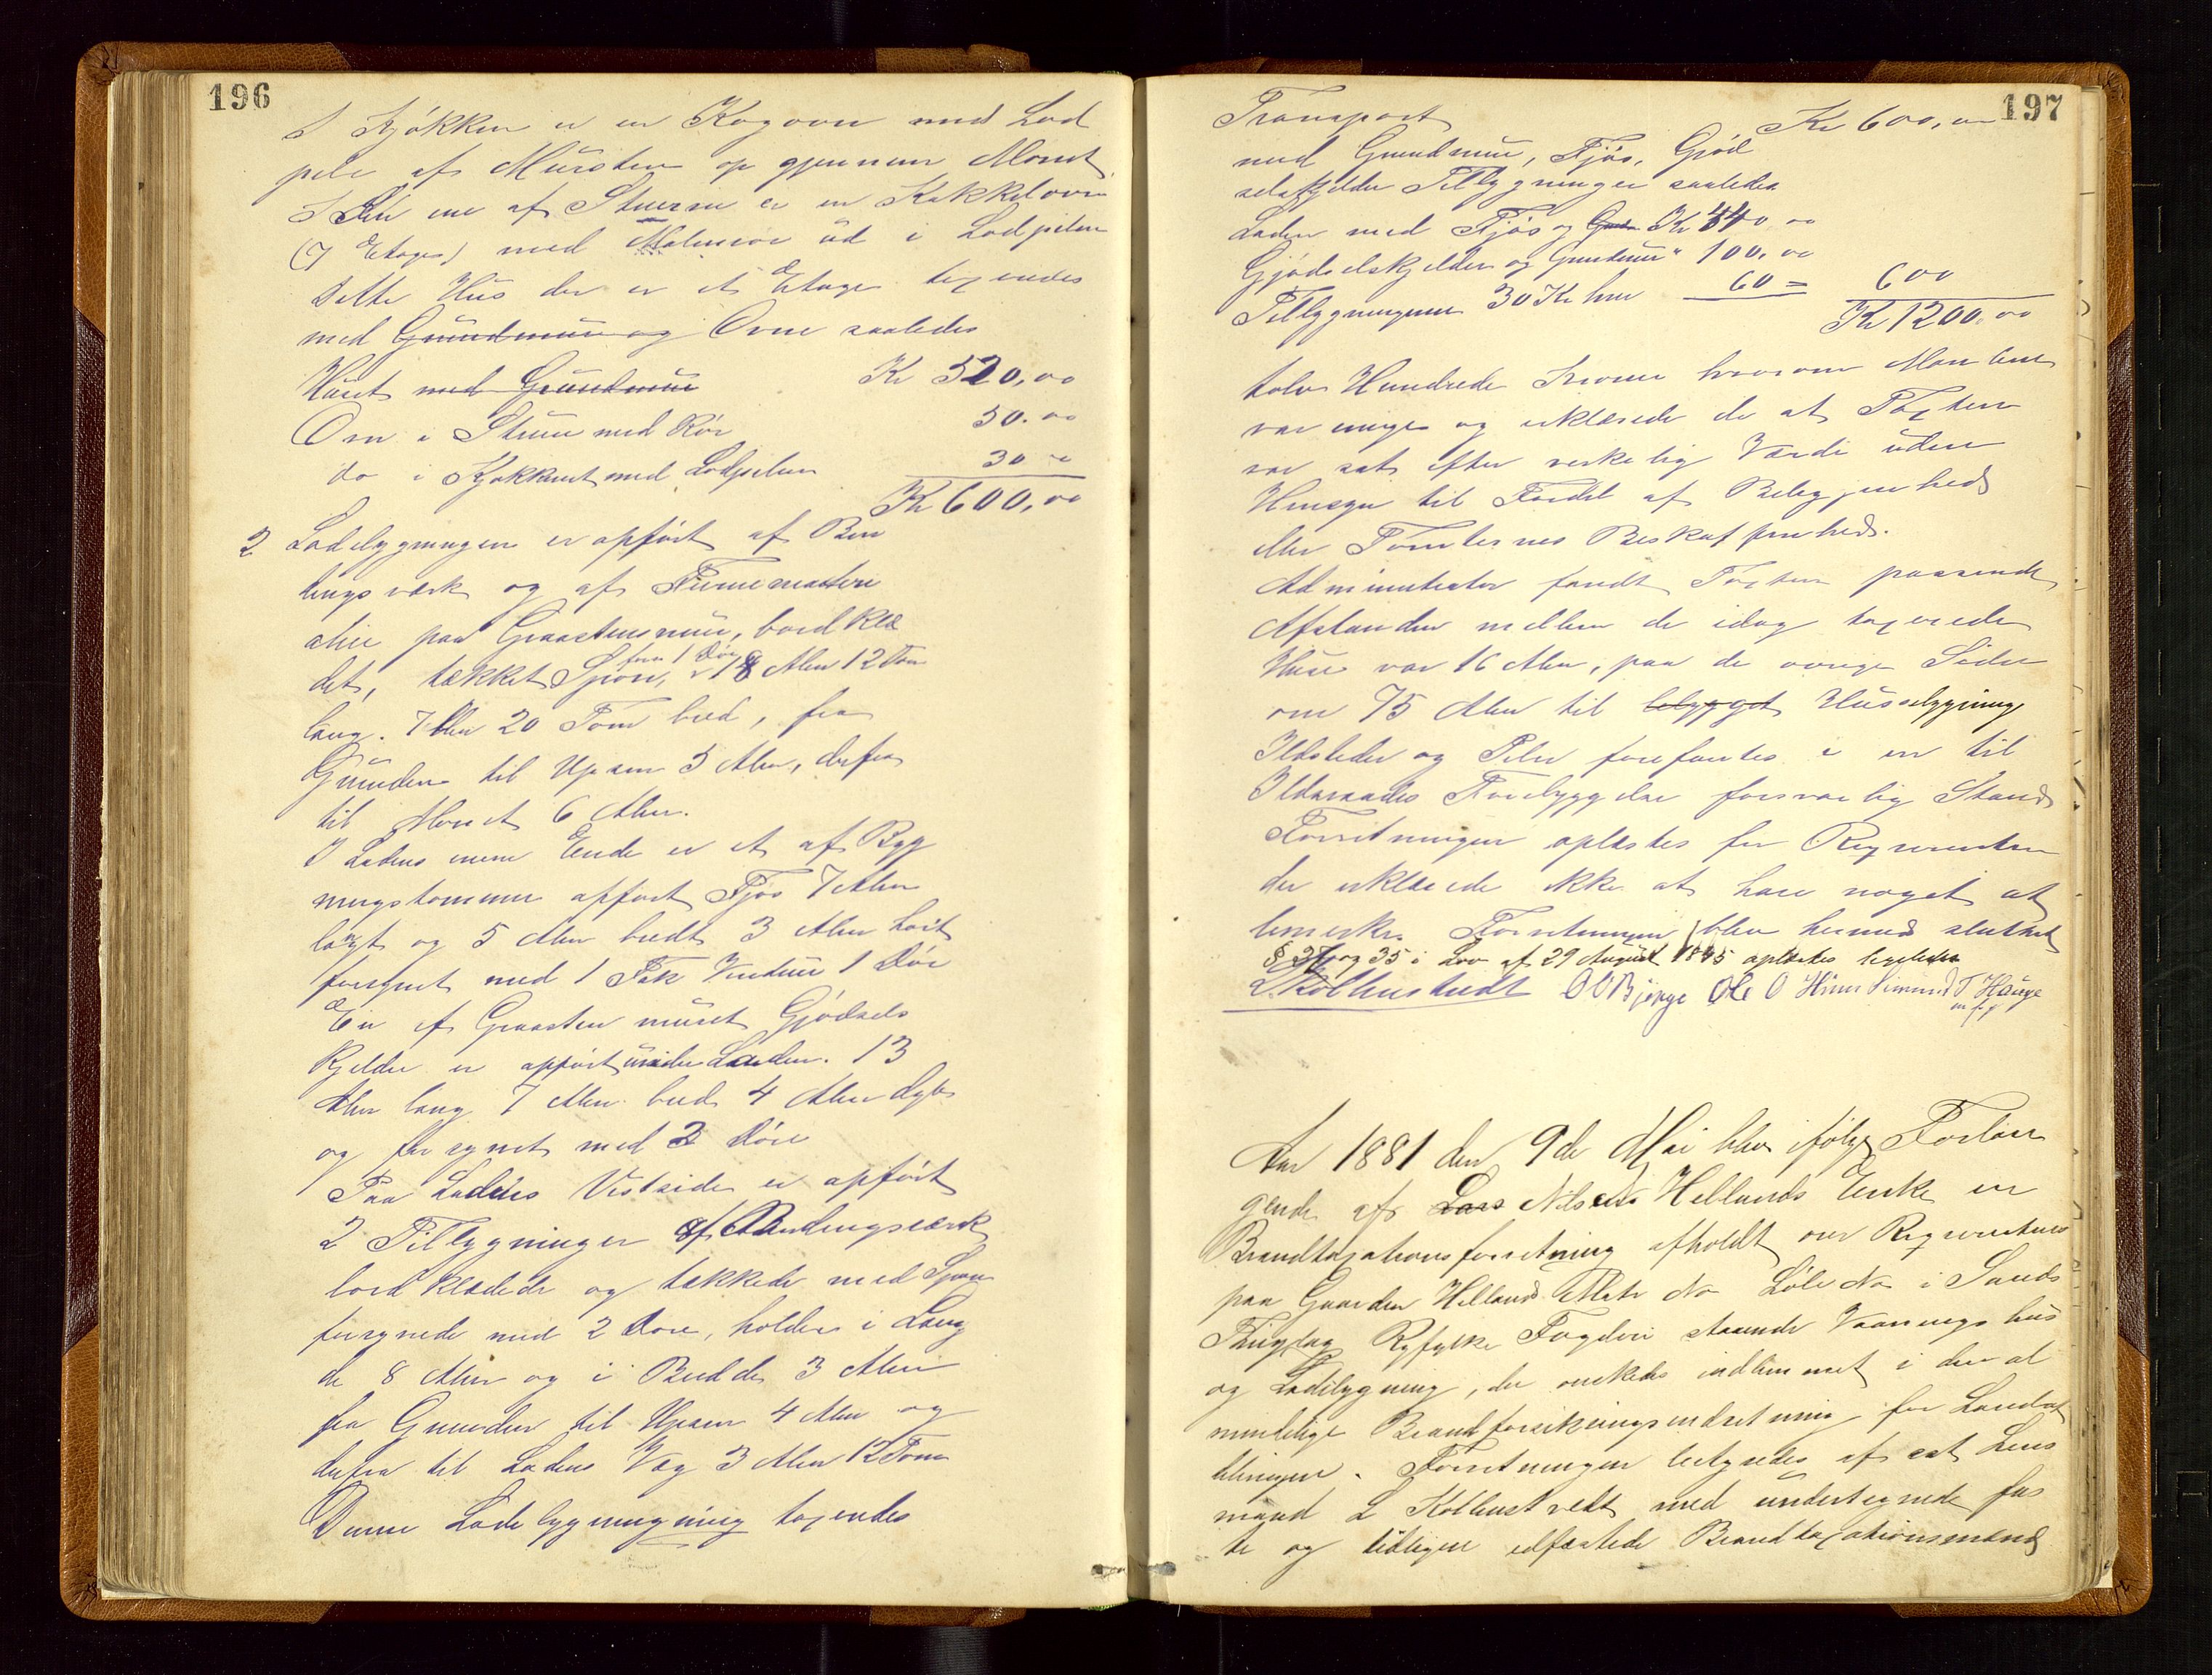 196
I Kjökken er en Kogovn med Lod
pibe af Mursten op gjennem Mönet
I den ene af Stuerne er en Kakkelovn
(7 Etages) med Malmrör ud i Lodpiben
Dette Hus der er et Etage taxeredes
med Grundmur og Ovne saaledes
Huset med Grundmur Kr 520,00
Ovn i Stuen med Rör 50.00
do i Kjökkenet med Lodpiben 30 -
Kr 600,00
2 Ladebygningen er opfört af Bin
dingsværk og af Furumateri
alier paa Graastensmur, bordklæ
det, tækket Spon, forsn 1 Dör, 18 Alen 12 Tom
lang. 7 Alen 20 Tom bred, fra
Grunden til Upsen 5 Alen, derfra
til Mönet 6 Alen.
I Ladens ene Ende er et af Byg
ningstömmer opfört Fjös 7 Alen
langt og 5 Alen bredt 3 Alen höit
forsynet med 1 Fak Vinduer 1 Dör
En af Graasten muret Gjödsels
kjelder er opfört under Laden. 13
Alen lang 7 Alen bred 4 Alen dyb
og forsynet med 2 Döre
Paa Ladens Vestside er opfört
2 Tilbygninger af Bindingsværk
bordklædede og tækkede med Spon
forsynede med 2 Döre, holder i Læng
de 8 Alen og i Bredde 3 Alen
fra Grunden til Upsen 4 Alen og
derfra til Ladens Væg 3 Alen 12 Tom
Denne Ladebygningning taxeredes
197
Transport Kr 600,00
med Grundmur, Fjös, Gjöd
selskjelder Tilbygninger saaledes
Laden med Fjös og Kr 440 00
Gjödselskjelder og Grundmur " 100,00
Tilbygningerne 30 Kr hver 60 = 600
Kr 1200.00
tolv Hundrede Kroner hvorom Mændene
var enige og erklærede de at Taxten
var sat efter virkelig Værdi uden
Hensyn til Fordel af Beliggenhed
eller Tomternes Beskaffenhed.
Administrator fandt Taxten passende
Afstanden mellem de idag taxerede
Huse var 16 Alen, paa de övrige Sider
over 75 Alen til bebygget Husebygning
Ildsteder og Piber forefantes i en til
Ildsvaades Forebyggelse forsvarlig Stand
Forretningen oplæstes for Reqvirenten
der erklærede ikke at have noget at
bemerke. Forretningen blev hermed sluttet
§ 34 og 35 i Lov af 29 August 1845 oplæstes ligeledes
L Kolbenstvedt O O Bjerge Ole O Hiim Simund T Hauge
m.f.p
Aar 1881 den 9de Mai blev ifölge Forlan
gende af Lars Nilsens Hellands Enke en
Brandtaxationsforretning afholdt over Reqvirentens
paa Gaarden Helland Matr No Löbe No i Sands
Thinglag Ryfylke Fogderi staaende Vaaningshus
og Ladebygning, der önskedes indlemmet i den al
mindelige Brandforsikringsindretning for Landets
bygninger. Forretningen bestyredes af cst Lens
mand L Kolbenstvedt med undertegnede fas
te og tidligere edfæstede Brandtaxationsmænd